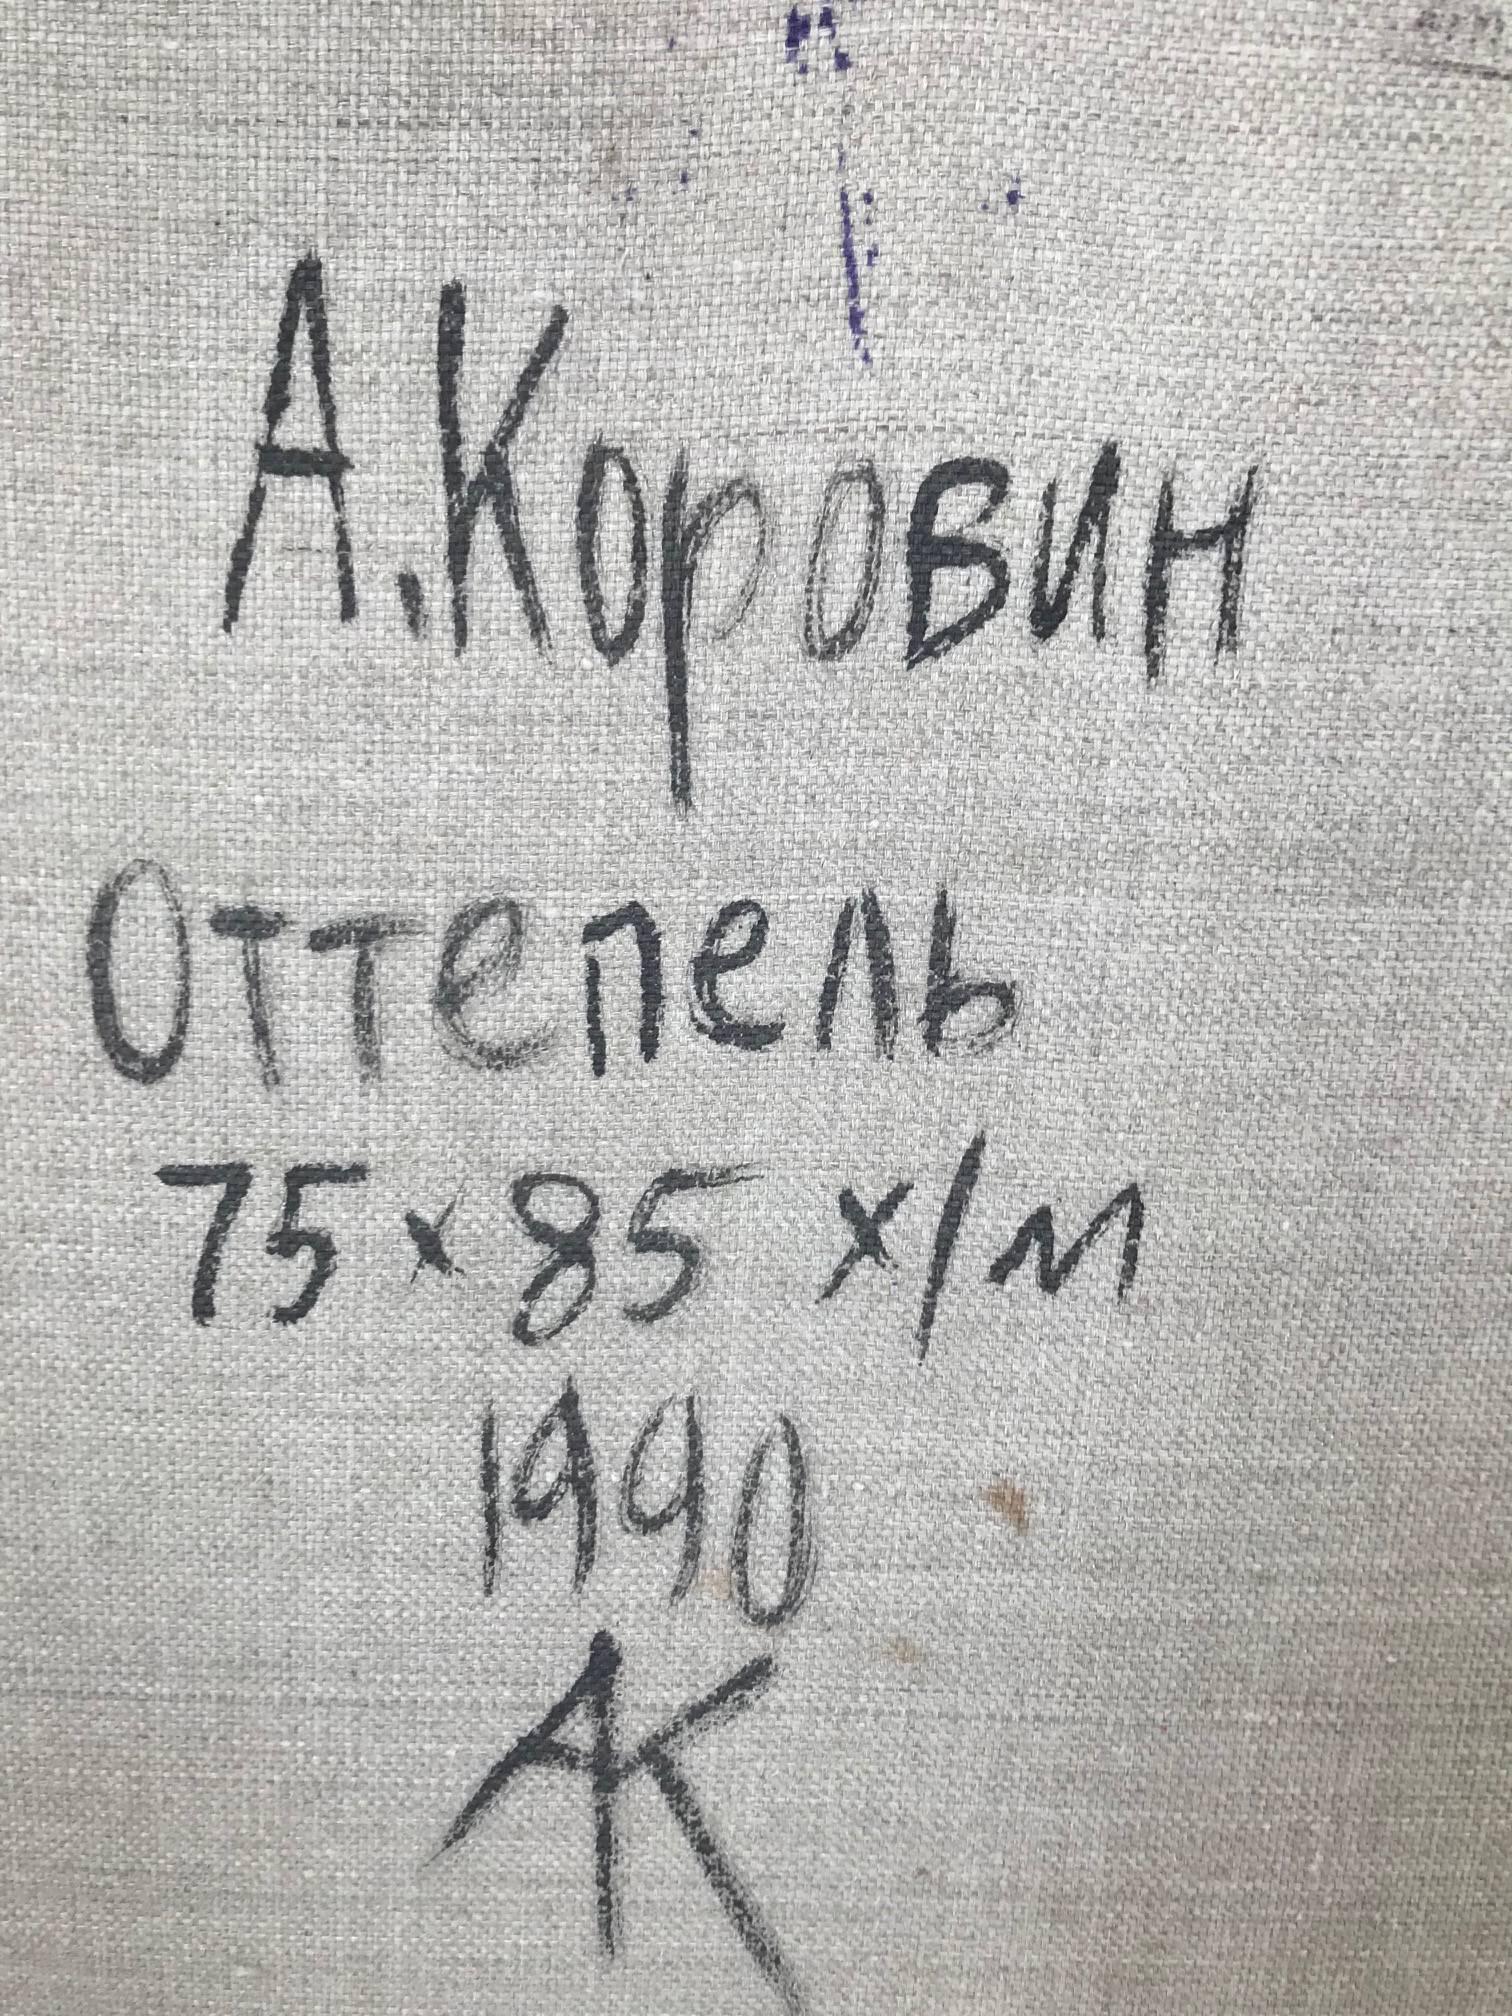 А. Коровин
Оттепель
75 × 85 х/м
1990
АК